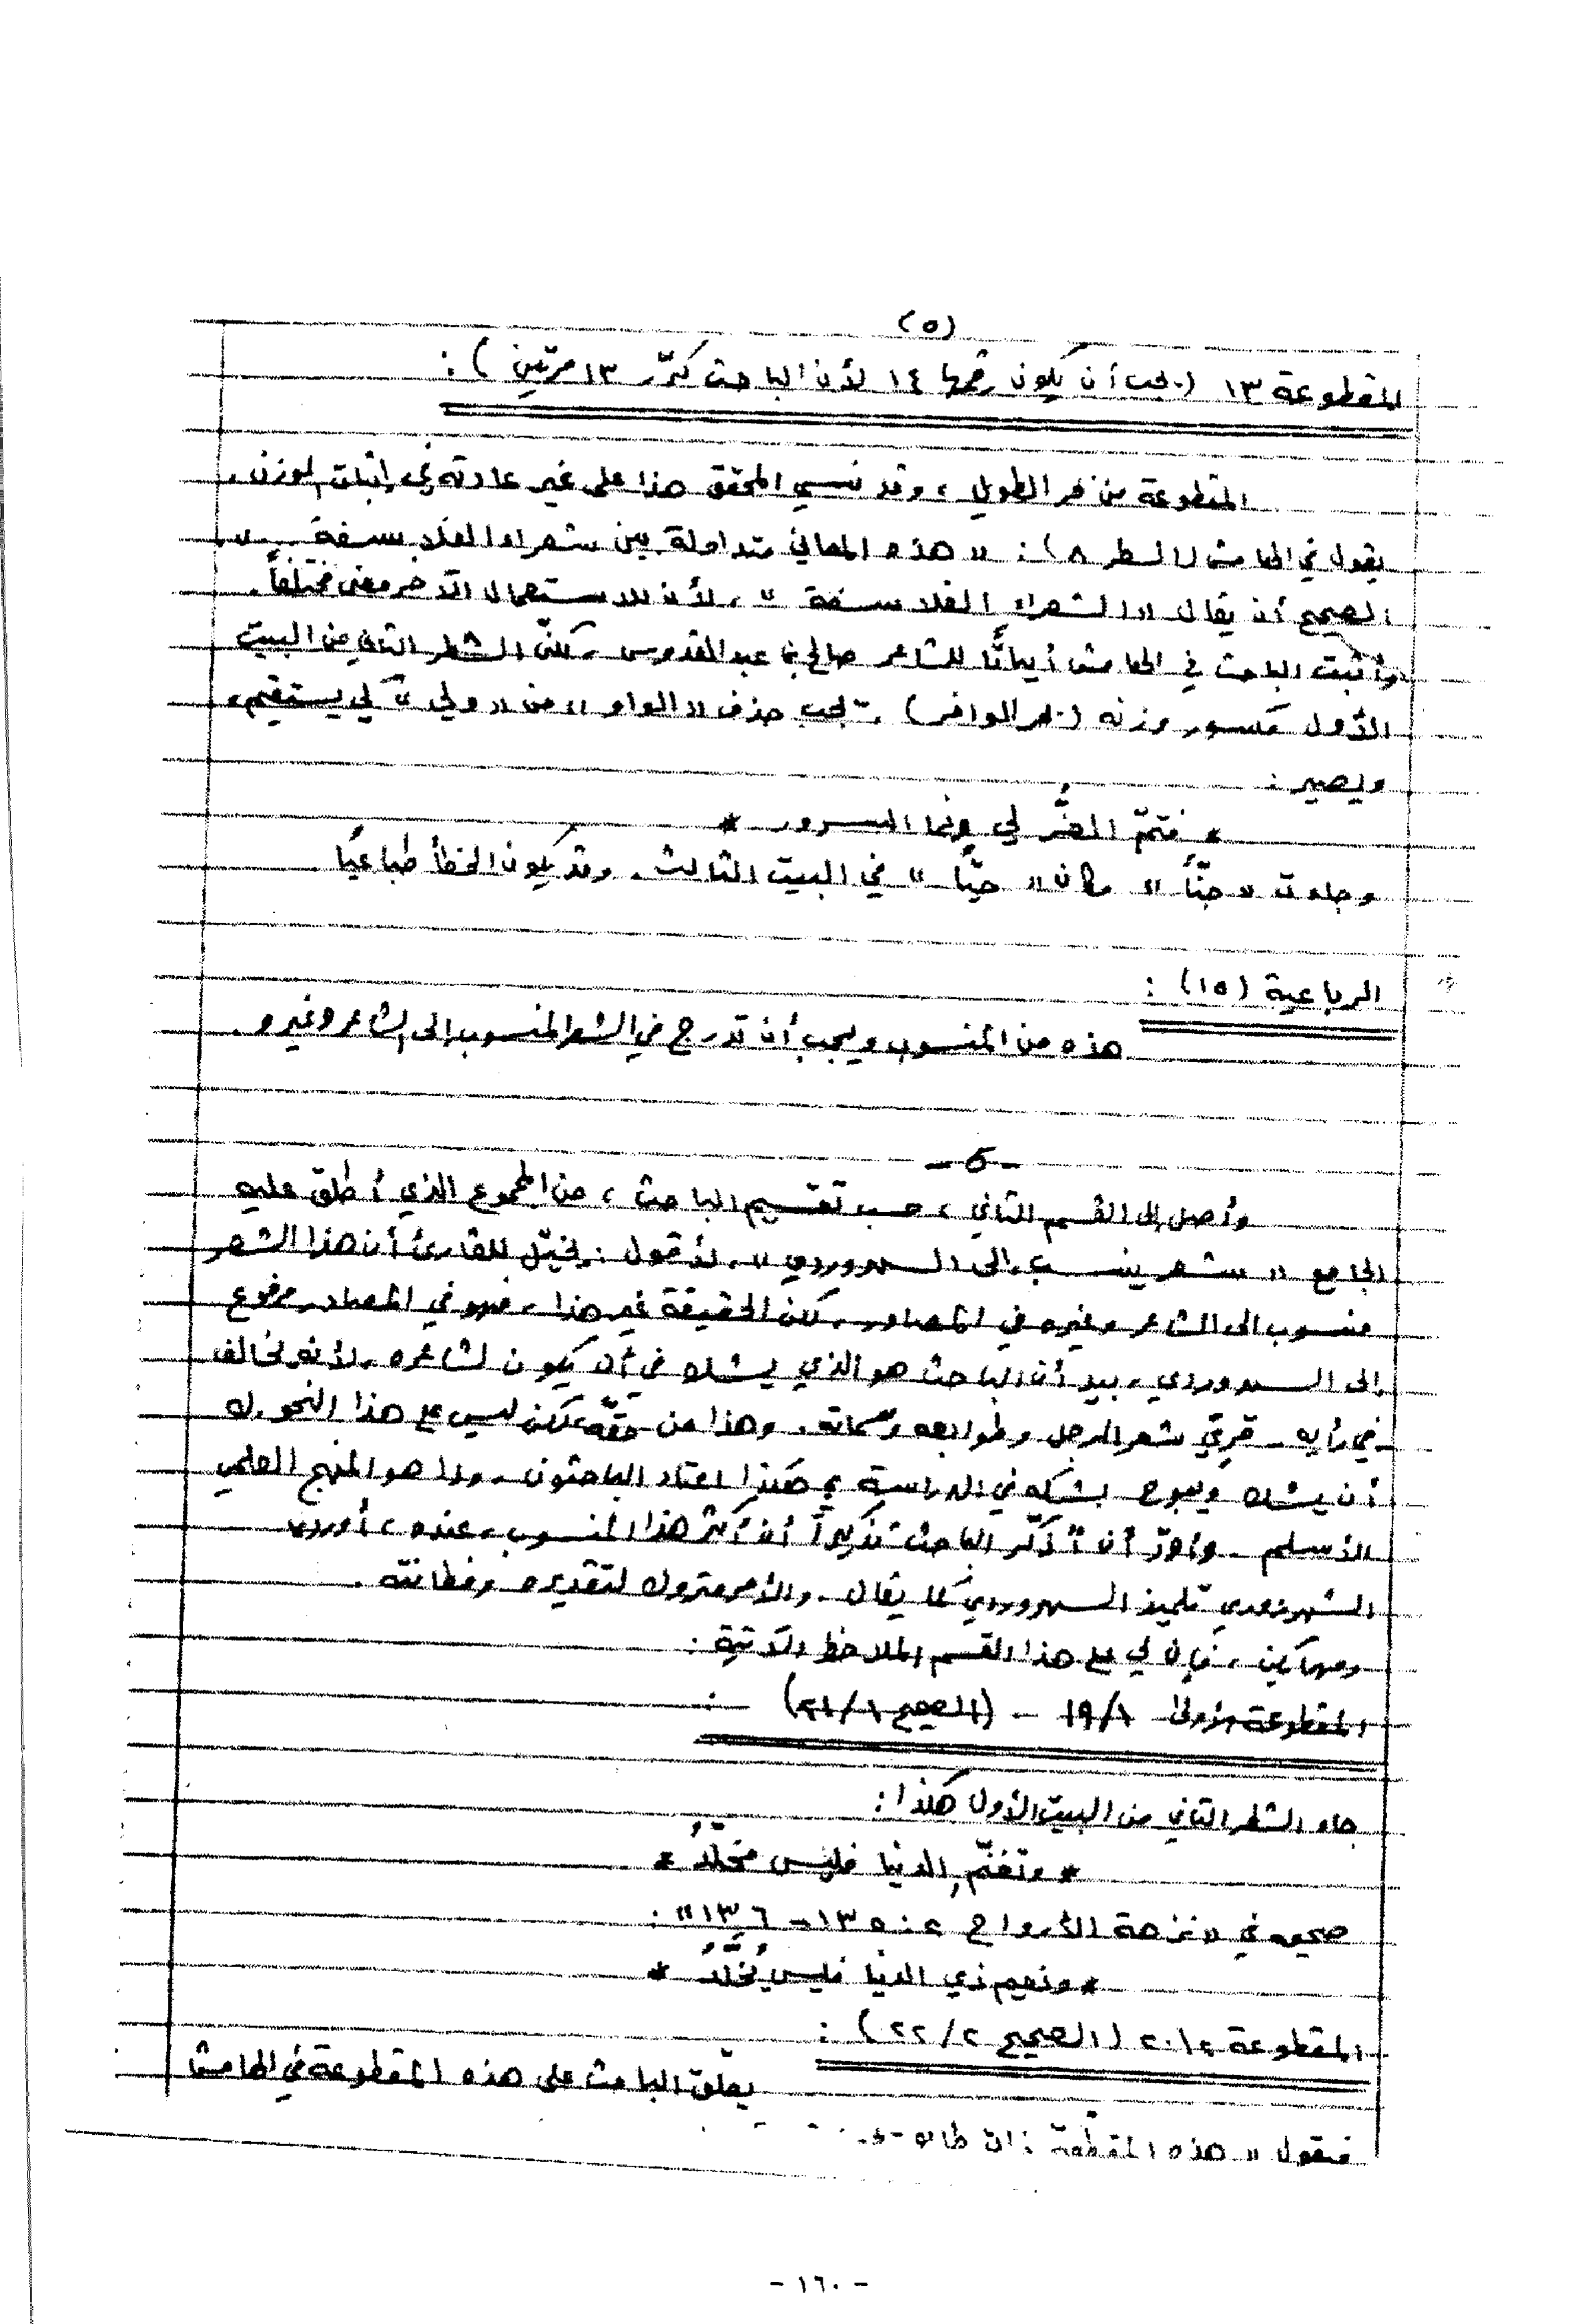 (٥)
المقطوعة ١٣ (يجب أن يكون رقمها ١٤ لأن الباحث كرّر ١٣ مرّتين) :
المقطوعة من بحر الطويل ، وقد نسي المحقق هذا على غير عادته في إثبات الوزن .
يقول في الهامش (السطر ٨) : « هذه المعاني متداولة بين شعراء الفلاسفة .. »
الصحيح أن يقال « الشعراء الفلاسفة » ، لأن للاستعمال الآخر معنى مختلفاً .
وأثبت الباحث في الهامش أبياتًا للشاعر صالح بن عبد القدوس ، لكنّ الشطر الثاني من البيت
الأول مكسور وزنه (بحر الوافر) . يجب حذف « الواو » من « ولي » كي يستقيم ،
ويصير :
* فتمّ العزُّ لي ونما السرور *
وجاءت « جبّاً » مكان « حيّاً » في البيت الثالث . وقد يكون الخطأ طباعيًا
الرباعية (١٥) :
هذه من المنسوب ويجب أن تدرج في الشعر المنسوب إلى الشاعر وغيره .
وأصل إلى القسم الثاني ، حسب تقسيم الباحث ، من المجموع الذي أطلق عليه
الجامع « شعر ينسب إلى السهروردي » . لأقول : يخيّل للقارئ أن هذا الشعر
منسوب إلى الشاعر وغيره في المصادر ، لكن الحقيقة غير هذا ، فهو في المصادر مرفوع
إلى السهروردي ، بيد أن الباحث هو الذي يشك في أن يكون لشاعره ، لأنه يخالف
- في رأيه - قريّ شعر الرجل وطوابعه وسماته . وهذا من حقّه لكن ليس على هذا النحو . له
أن يشك ويبوح بشكه في الدراسة ، هكذا اعتاد الباحثون ، وذا هو المنهج العلمي
الأسلم . وأودّ أن أذكّر الباحث تذكيراً أن أكثر هذا المنسوب ، عنده ، أورده
الشهرزوري تلميذ السهروردي كما يقال . والأمر متروك لتقديره وفطانته .
ومهما يكن ، فإن لي على هذا القسم الملاحظ الآتية :
المقطوعة الأولى ١٩/١ - (الصحيح ٢١/١) - :
جاء الشطر الثاني من البيت الأول هكذا :
* وتغنّمِ الدنيا فليس مخلّدُ *
صحيحه في « نزهة الأرواح ٢ : ١٣٥ - ١٣٦ » :
* ونعيم ذي الدنيا فليس يُخلَّدُ *
المقطوعة ٢٠/٢ (الصحيح ٢٢/٢) :
يعلّق الباحث على هذه المقطوعة في الهامش
فيقول « هذه المقطّعة ذات طابع
- ١٦٠ -